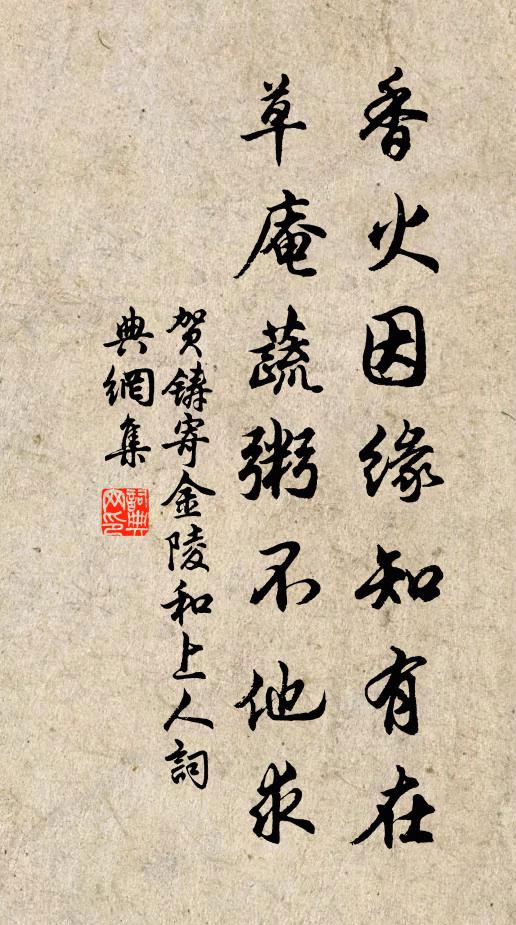 香火因缘知有在
草庵蔬粥不他求
贺鑄寄金陵和上人詞
典網集
詞典網印